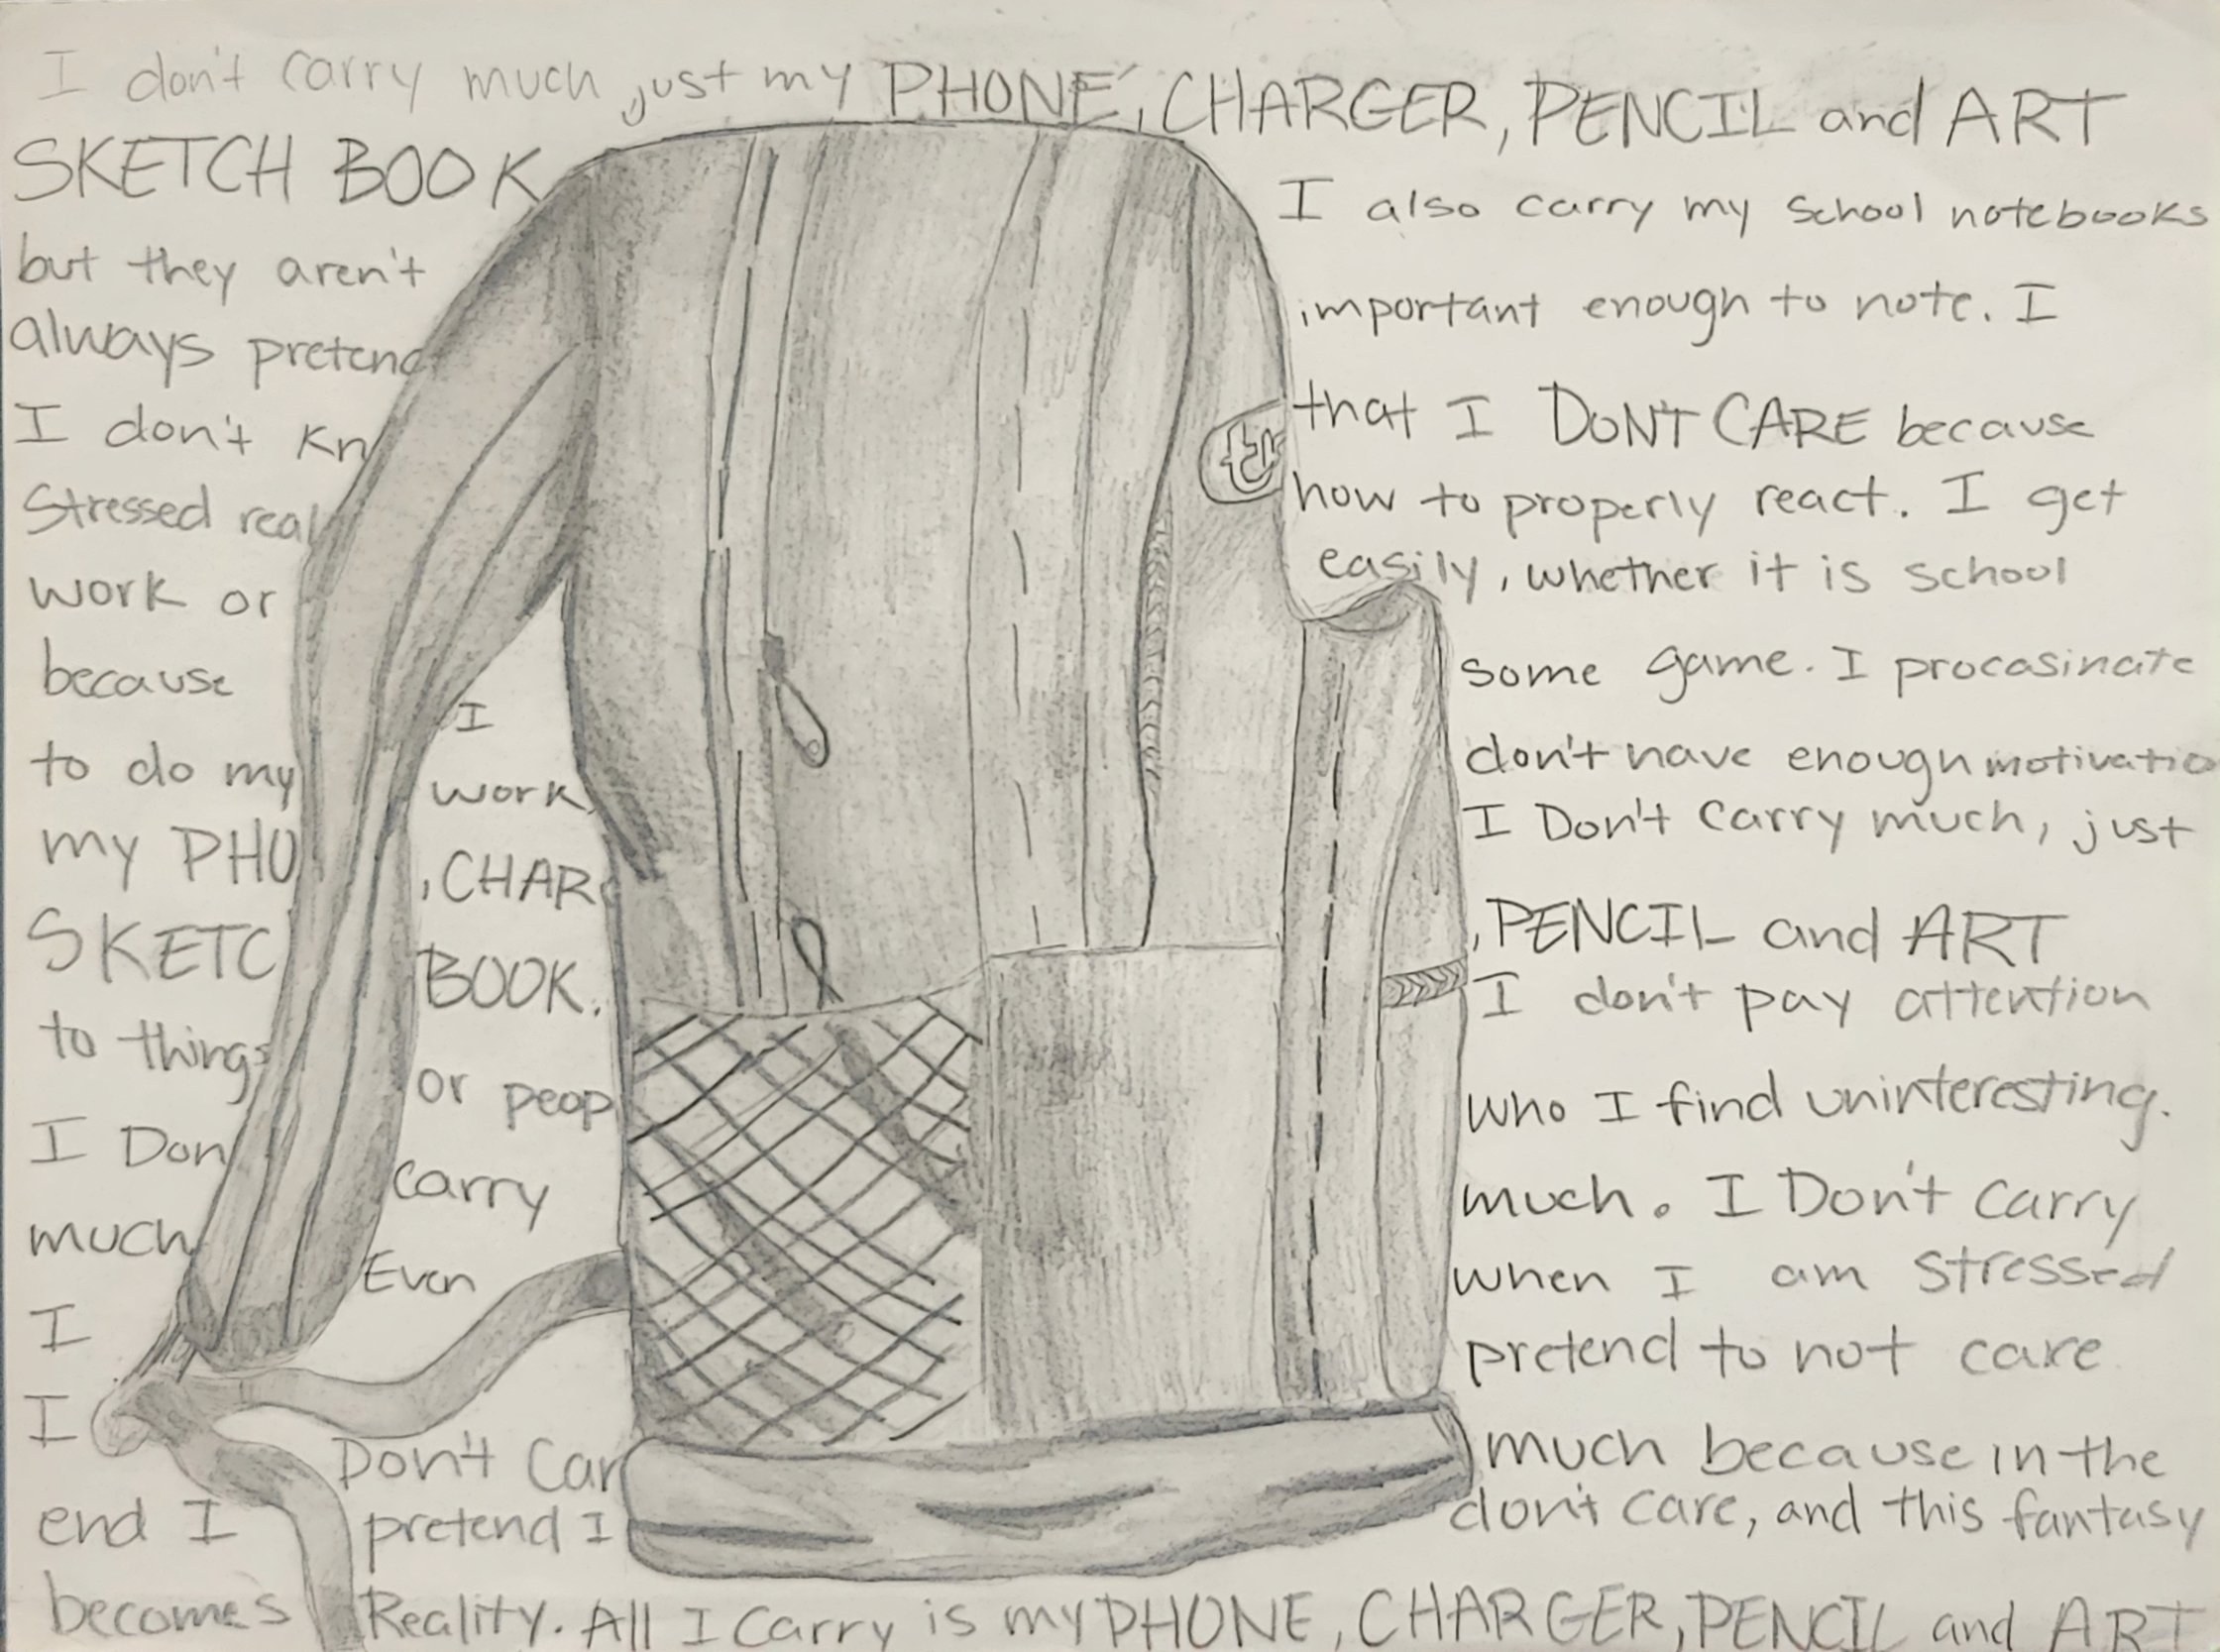 I don't carry much just my PHONE, CHARGER, PENCIL and ART
SKETCH BOOK I also carry my school notebooks
but they aren't important enough to note. I
always pretend that I DON'T CARE because
I don't kn how to properly react. I get
Stressed real easily, whether it is school
work or some game. I procasinate
because I don't have enough motivatio
to do my work, I Don't carry much, just
my PHO , CHAR , PENCIL and ART
SKETC BOOK. I don't pay attention
to things or peop who I find uninteresting.
I Don carry much. I Don't carry
much Even when I am stressed
I pretend to not care
I Don't Car much because in the
end I pretend I don't care, and this fantasy
becomes Reality. All I carry is my PHONE, CHARGER, PENCIL and ART